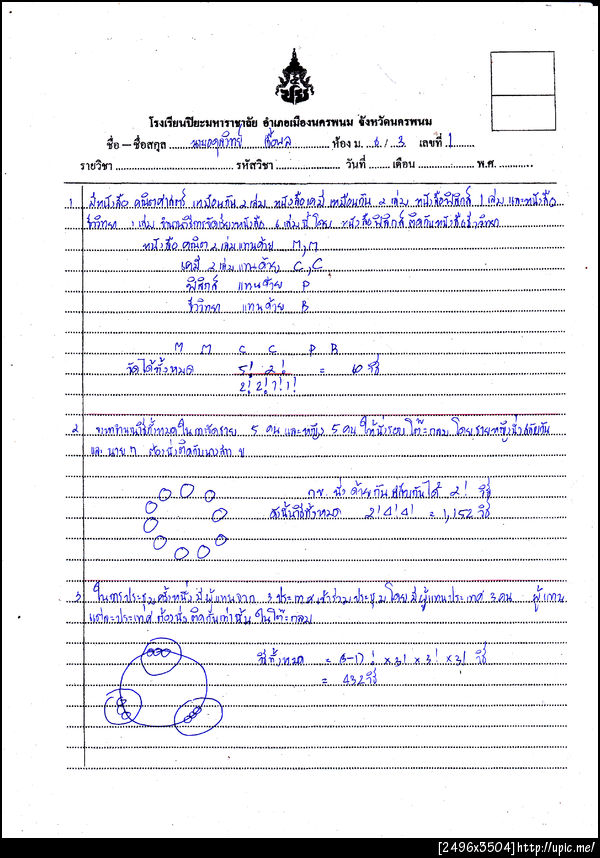 โรงเรียนปิยะมหาราชาลัย อำเภอเมืองนครพนม จังหวัดนครพนม
ชื่อ – สกุล ห้อง ม. 6 / 3 เลขที่ 1
รายวิชา รหัสวิชา วันที่ เดือน พ.ศ.
1 มีหนังสือ คณิตศาสตร์ เหมือนกัน 2 เล่ม หนังสือเคมี เหมือนกัน 2 เล่ม หนังสือฟิสิกส์ 1 เล่ม และหนังสือ
ชีววิทยา 1 เล่ม จำนวนวิธีการจัดเรียงหนังสือ 6 เล่ม นี้โดย หนังสือฟิสิกส์ ติดกับหนังสือชีววิทยา
หนังสือ คณิต 2 เล่ม แทนด้วย M, M
เคมี 2 เล่ม แทนด้วย C, C
ฟิสิกส์ แทนด้วย P
ชีววิทยา แทนด้วย B
M M C C P B
จัดได้ทั้งหมด 5! 2! = 60 วิธี
2! 2! 1! 1!
2 จงหาจำนวนวิธีทั้งหมดในการจัดชาย 5 คน และหญิง 5 คน ให้นั่งรอบโต๊ะกลม โดยชายหญิงนั่งสลับกัน
และ นาย ก ต้องนั่งติดกับนางสาว ข
กข นั่งด้วยกัน สลับกันได้ 2! วิธี
ดังนั้นวิธีทั้งหมด 2! 4! 4! = 1,152 วิธี
3 ในการประชุมครั้งหนึ่ง มีผู้แทนจาก 3 ประเทศ เข้าร่วมประชุม โดยมีผู้แทนประเทศ 3 คน ผู้แทน
แต่ละประเทศ ต้องนั่งติดกันเท่านั้น ในโต๊ะกลม
วิธีทั้งหมด = (3-1)! × 3! × 3! × 3! วิธี
= 432 วิธี
[2496x3504] http://upic.me/